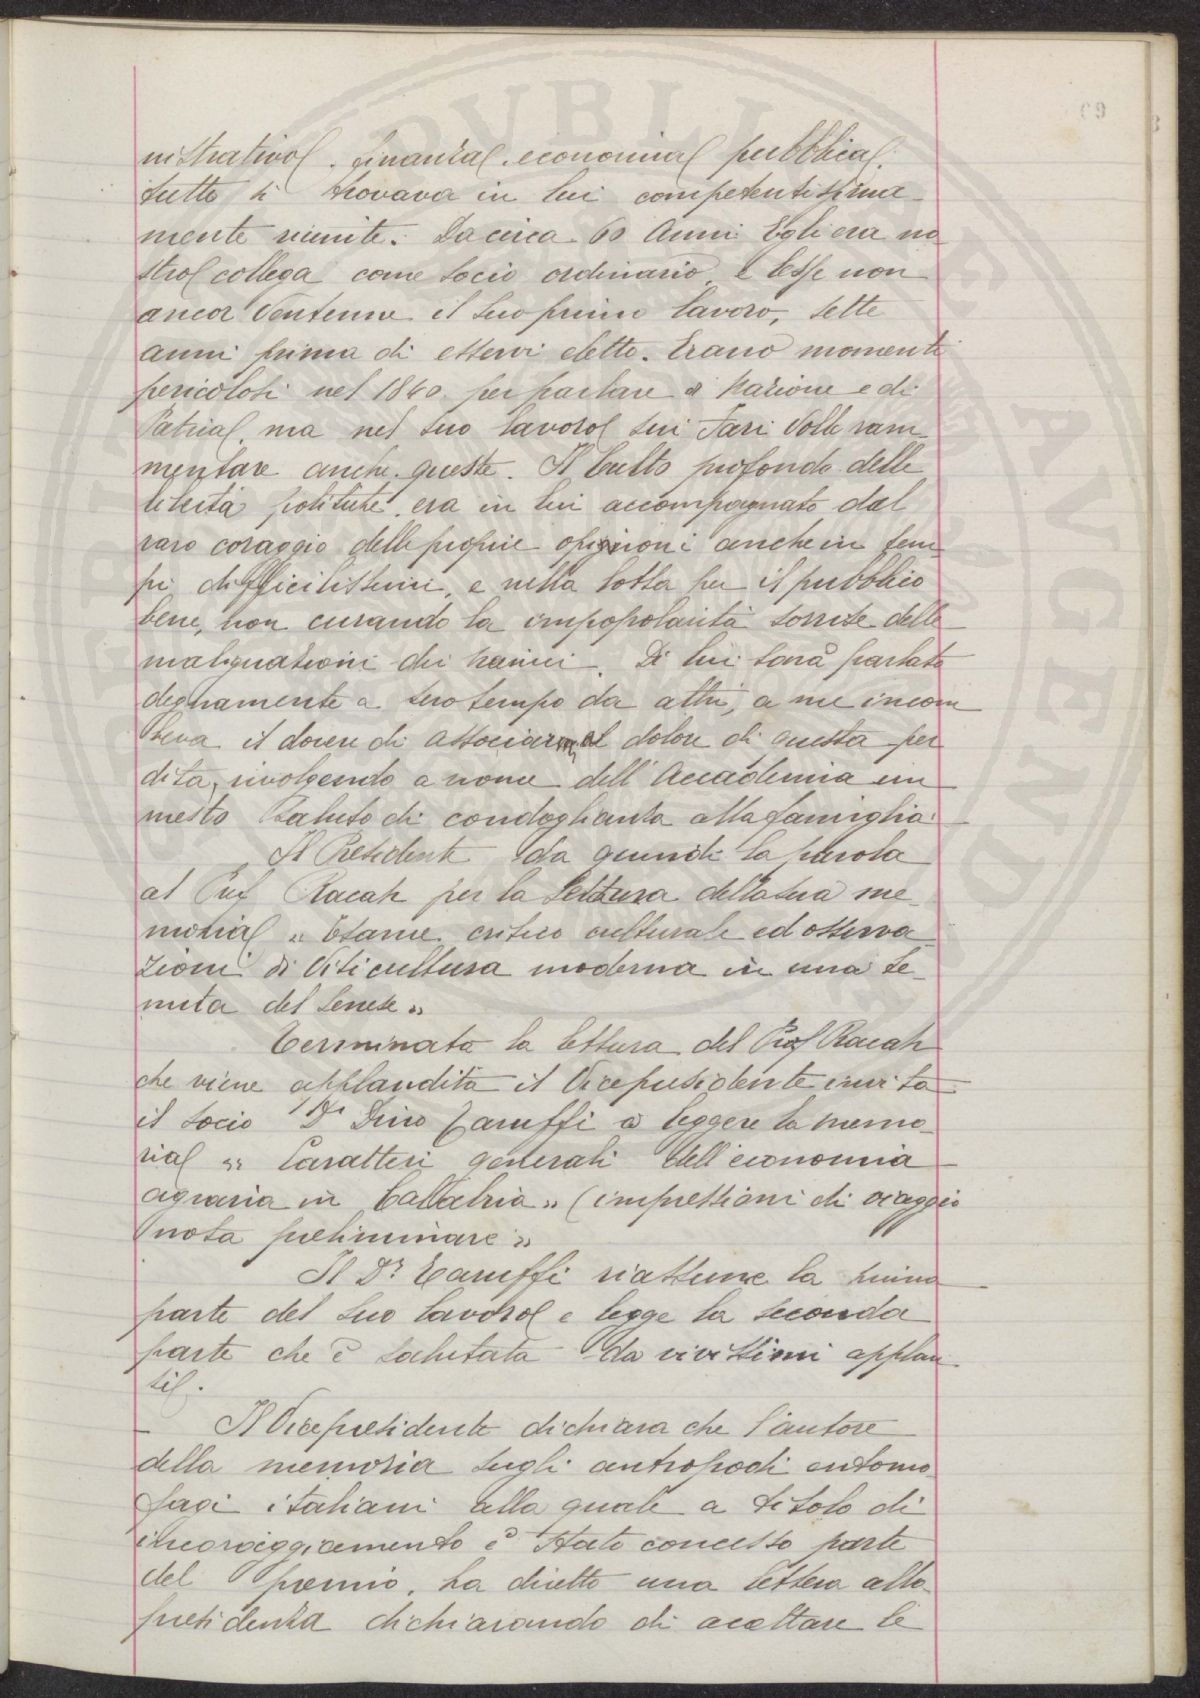 nistrativo, finanza, economia pubblica,
tutto si trovava in lui competentissima-
mente riunite. Da circa 60 Anni Egli era no
stro collega come socio ordinario, e lesse non
ancor Ventenne il suo primo lavoro, sette
anni prima di esservi eletto. Erano momenti
pericolosi nel 1840 per parlare di Nazione e di
Patria, ma nel suo lavoro sui Fari Volle ram-
mentare anche queste. Il Culto profondo delle
libertà politiche, era in lui accompagnato dal
raro coraggio delle proprie opinioni anche in tem-
pi difficilissimi, e nella lotta per il pubblico
bene, non curando la impopolarità sorrise delle
malignazioni dei nemici. Di lui sarà parlato
degnamente a suo tempo da altri, a me incom
beva il dovere di associarmi al dolore di questa per
dita, rivolgendo a nome dell'Accademia un
mesto Saluto di condoglianza alla famiglia.
Il Presidente da quindi la parola
al Prof Racah per la Lettura della sua me-
moria « Esame critico culturale ed osserva-
zioni di Viticultura moderna in una te-
nuta del Senese »
Terminata la lettura del Prof Racah
che viene applaudita il Vicepresidente invita
il socio Dr Dino Taruffi a leggere la memo-
ria « Caratteri generali dell'economia
agraria in Calabria » (impressioni di viaggio
nota preliminare »
Il Dr. Taruffi riassume la prima
parte del suo lavoro e legge la seconda
parte che è salutata da vivissimi applau
si.
Il Vicepresidente dichiara che l'autore
della memoria sugli antropodi entomo
fagi italiani alla quale a titolo di
incoraggiamento è stato concesso parte
del premio, ha diretto una lettera alla
presidenza dichiarando di accettare le